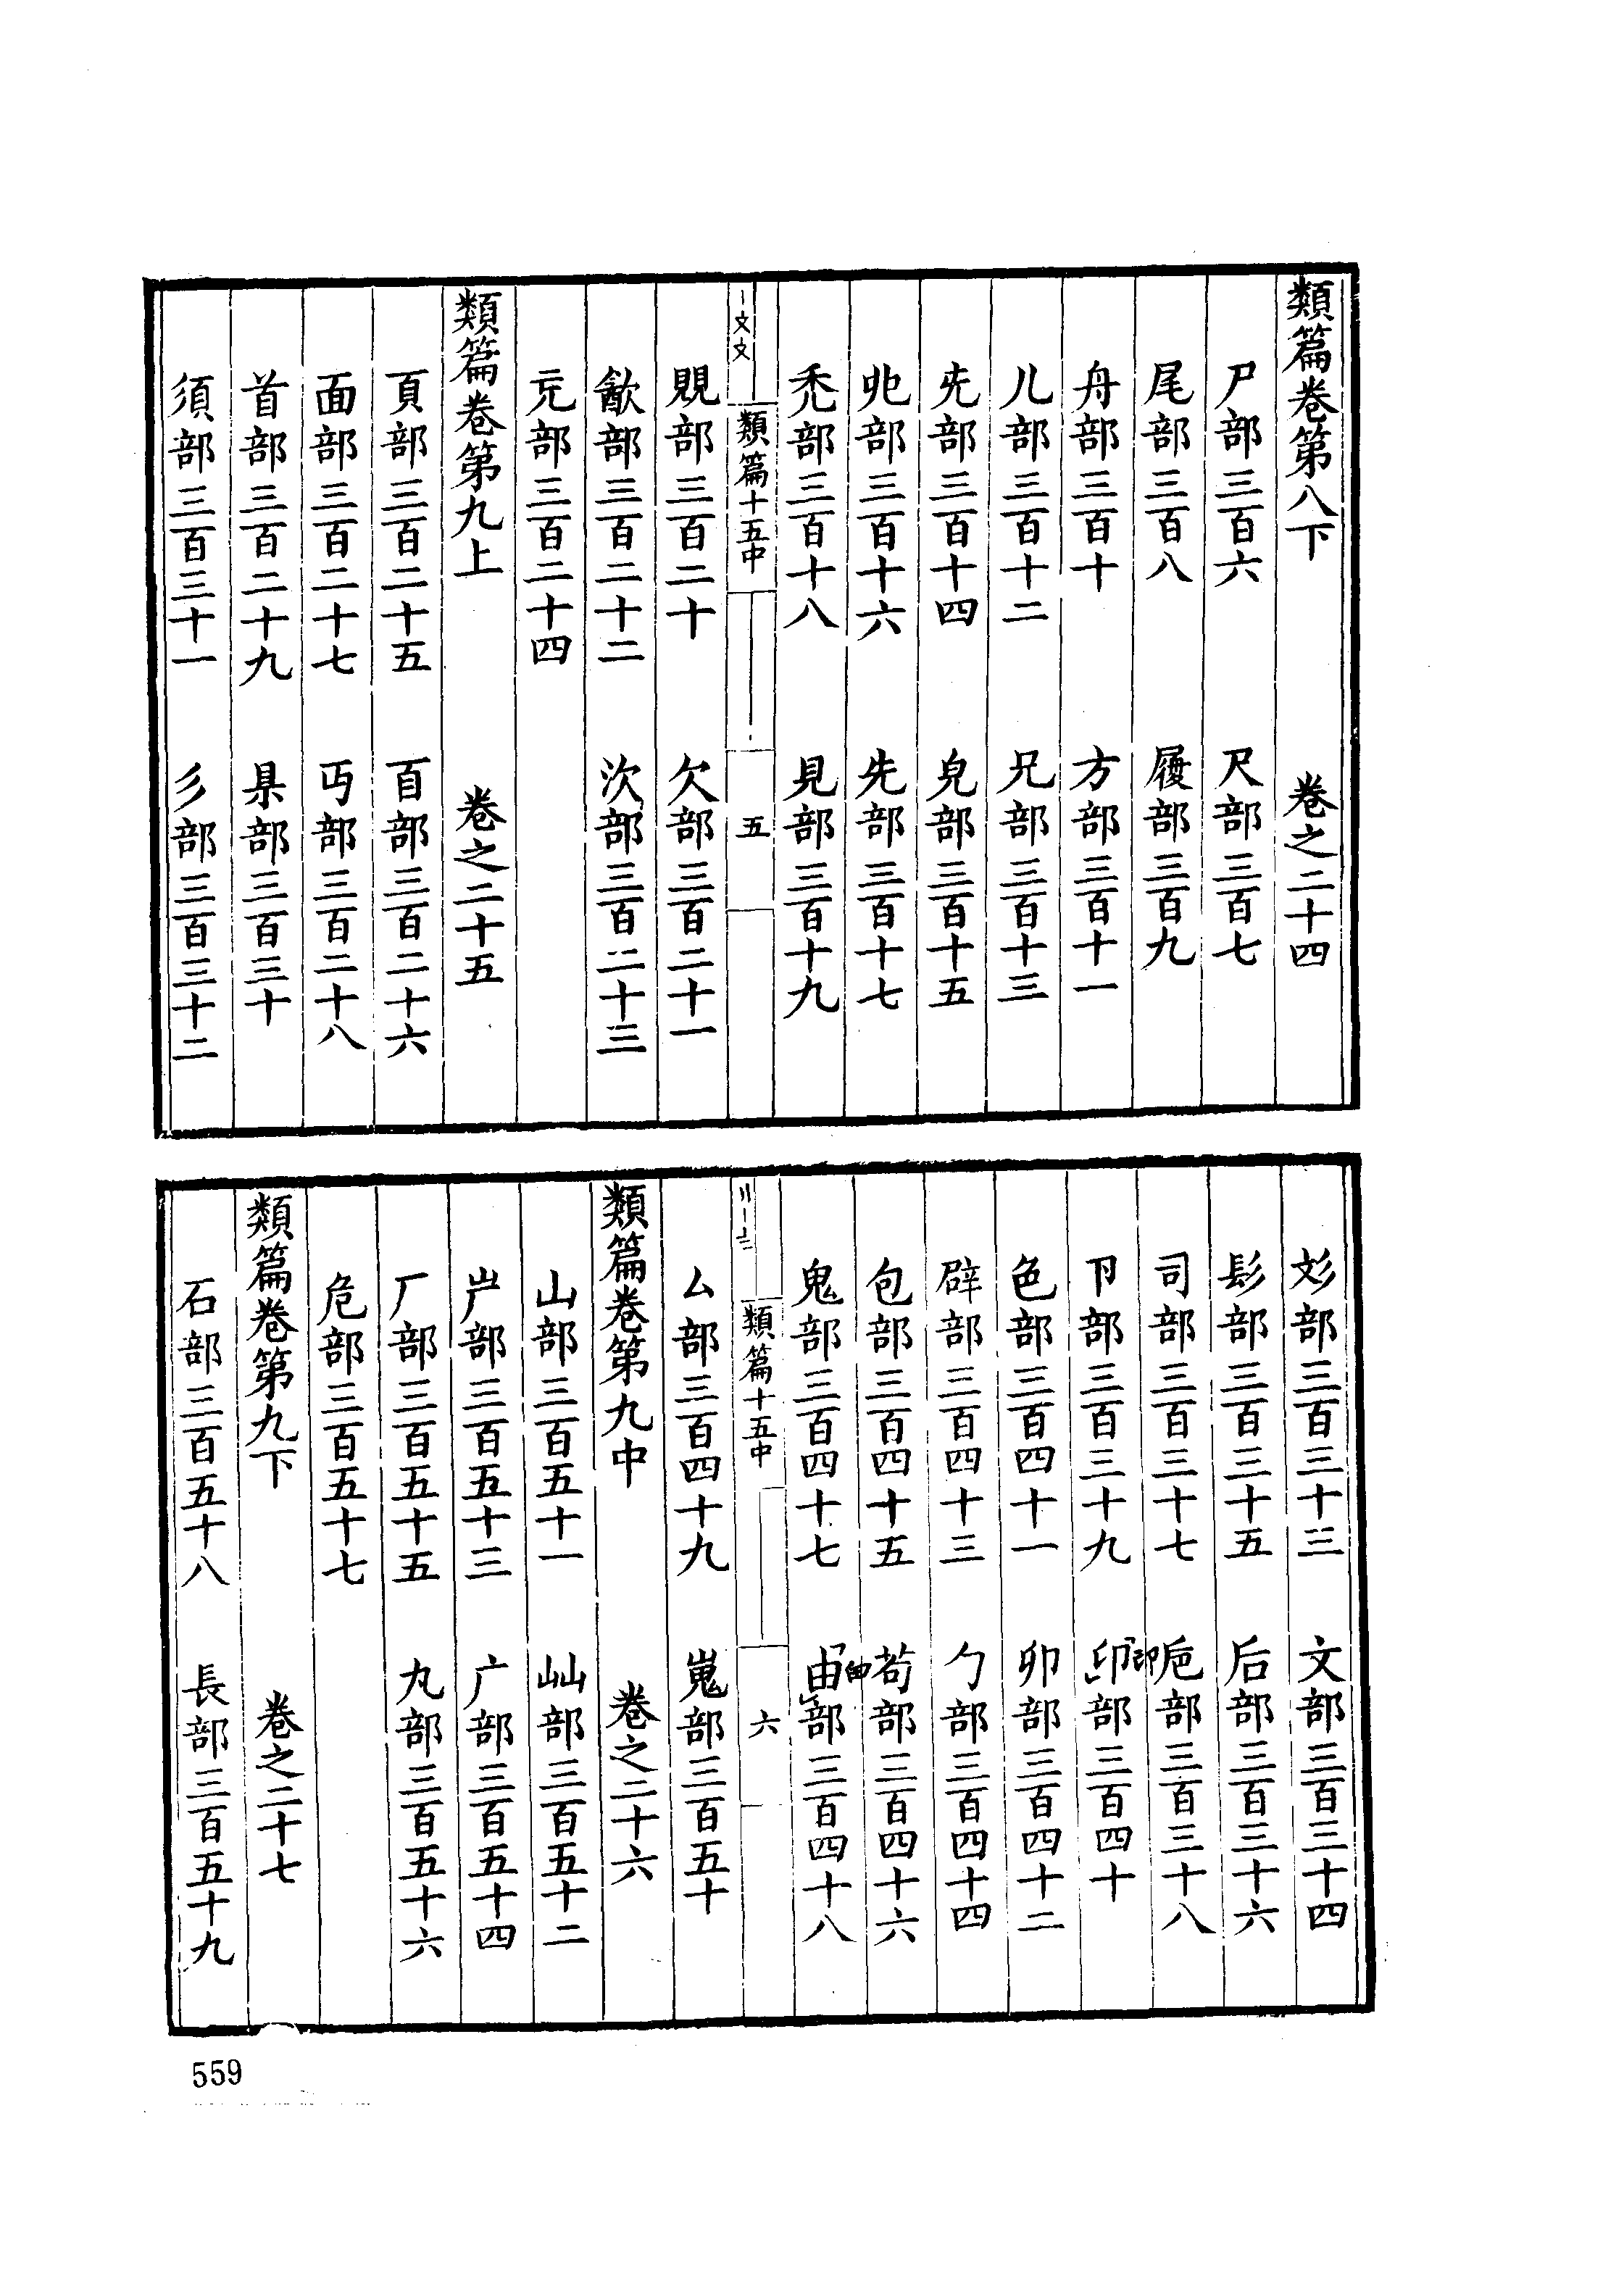 類篇卷第八下　卷之二十四
尸部三百六　尺部三百七
尾部三百八　履部三百九
舟部三百十　方部三百十一
儿部三百十二　兄部三百十三
兂部三百十四　皃部三百十五
𠑹部三百十六　先部三百十七
禿部三百十八　見部三百十九
類篇十五中　五
覞部三百二十　欠部三百二十一
㱃部三百二十二　㳄部三百二十三
旡部三百二十四
類篇卷第九上　卷之二十五
頁部三百二十五　𦣻部三百二十六
面部三百二十七　丏部三百二十八
首部三百二十九　𥄉部三百三十
須部三百三十一　彡部三百三十二
彣部三百三十三　文部三百三十四
髟部三百三十五　后部三百三十六
司部三百三十七　巵部三百三十八
卪部三百三十九　印部三百四十
色部三百四十一　卯部三百四十二
辟部三百四十三　勹部三百四十四
包部三百四十五　茍部三百四十六
鬼部三百四十七　甶部三百四十八
類篇十五中　六
厶部三百四十九　嵬部三百五十
類篇卷第九中　卷之二十六
山部三百五十一　屾部三百五十二
屵部三百五十三　广部三百五十四
厂部三百五十五　丸部三百五十六
危部三百五十七
類篇卷第九下　卷之二十七
石部三百五十八　長部三百五十九
559